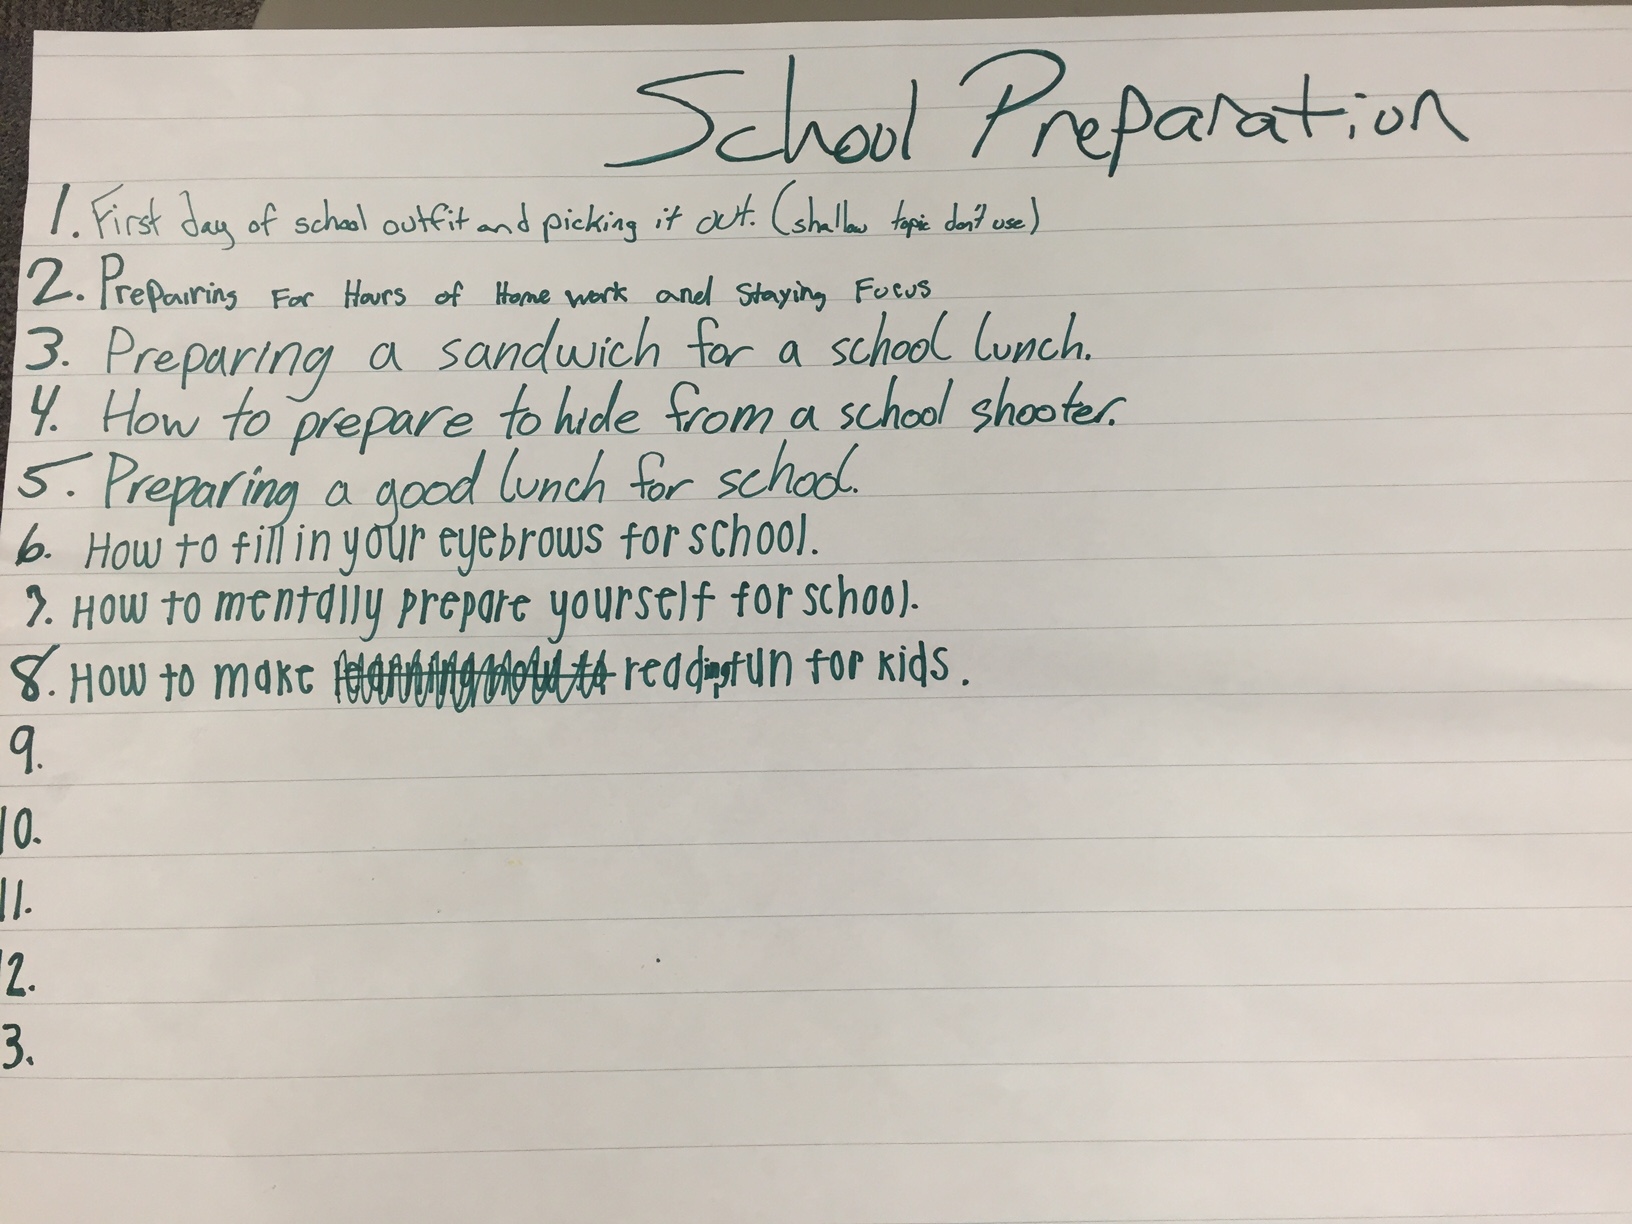 School Preparation
1. First day of school outfit and picking it out. (shallow topic don't use)
2. Prepairing For Hours of Home work and Staying Focus
3. Preparing a sandwich for a school lunch.
4. How to prepare to hide from a school shooter.
5. Preparing a good lunch for school.
6. How to fill in your eyebrows for school.
7. How to mentally prepare yourself for school.
8. How to make reading fun for kids.
9.
10.
11.
12.
3.